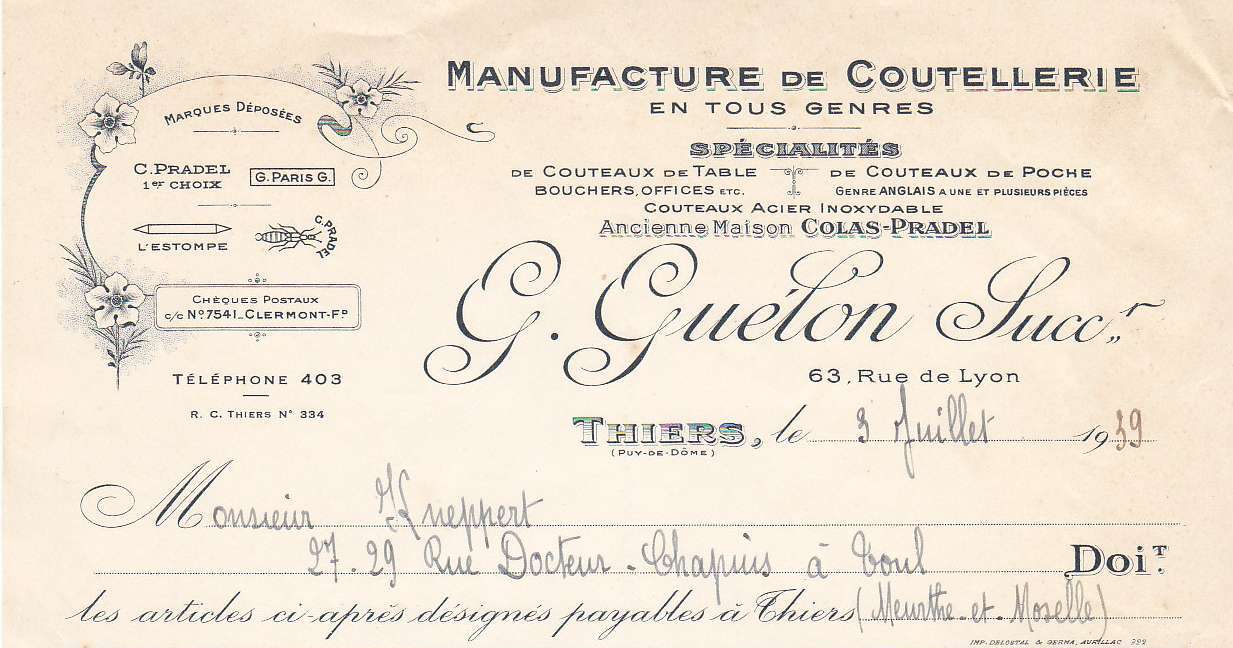 MANUFACTURE DE COUTELLERIE
EN TOUS GENRES
SPÉCIALITÉS
DE COUTEAUX DE TABLE
BOUCHERS, OFFICES ETC.
DE COUTEAUX DE POCHE
GENRE ANGLAIS A UNE ET PLUSIEURS PIÈCES
COUTEAUX ACIER INOXYDABLE
Ancienne Maison COLAS-PRADEL
G. Guélon Succr
63, Rue de Lyon
MARQUES DÉPOSÉES
C. PRADEL
1er CHOIX
G. PARIS G.
L'ESTOMPE
C. PRADEL
CHÈQUES POSTAUX
c/c No 7541_CLERMONT-Fd
TÉLÉPHONE 403
R. C. THIERS No 334
THIERS, le 3 Juillet 1939
(PUY-DE-DÔME)
Monsieur Kneppert
27-29 Rue Docteur-Chapuis à Toul
DOIT.
les articles ci-après désignés payables à Thiers (Meurthe-et-Moselle)
IMP. DELOSTAL & GERMA, AURILLAC